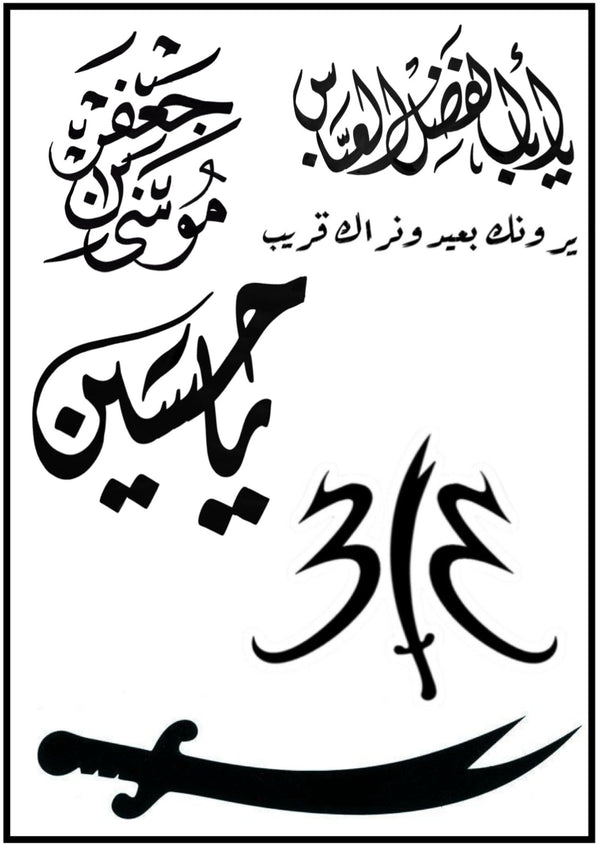 يا أبا الفضل العباس
موسى بن جعفر
يرونك بعيد ونراك قريب
يا حسين